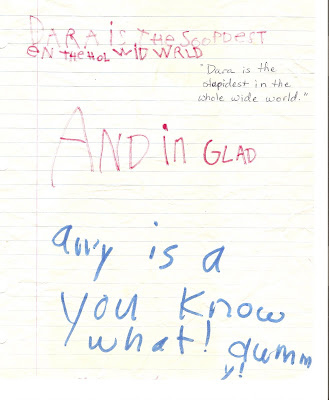 DARA iS THE SOOPDEST
EN THE HOL WiD WRLD
"Dara is the
stupidest in the
whole wide world."
AND in GLAD
avry is a
you know
what! dumm
y!